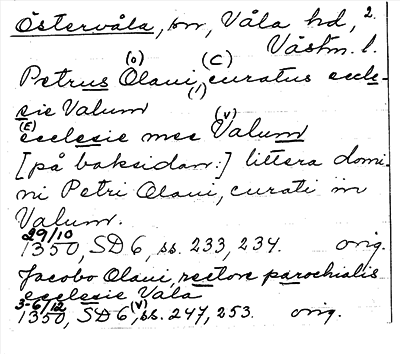 Östervåla, sn, Våla hd, 2.
Västm. l.
(O) (C)
Petrus Olaui, curatus eccle-
(/)
sie Valum
(E) (V)
ecclesie mee Valum
[på baksidan:] littera domi-
ni Petri Olaui, curati in
Valum.
29/10
1350, SD 6, ss. 233, 234. orig.
Jacobo Olaui, rectore parochialis
ecclesie Vala
3-6/12 (V)
1350, SD 6, ss. 247, 253. orig.